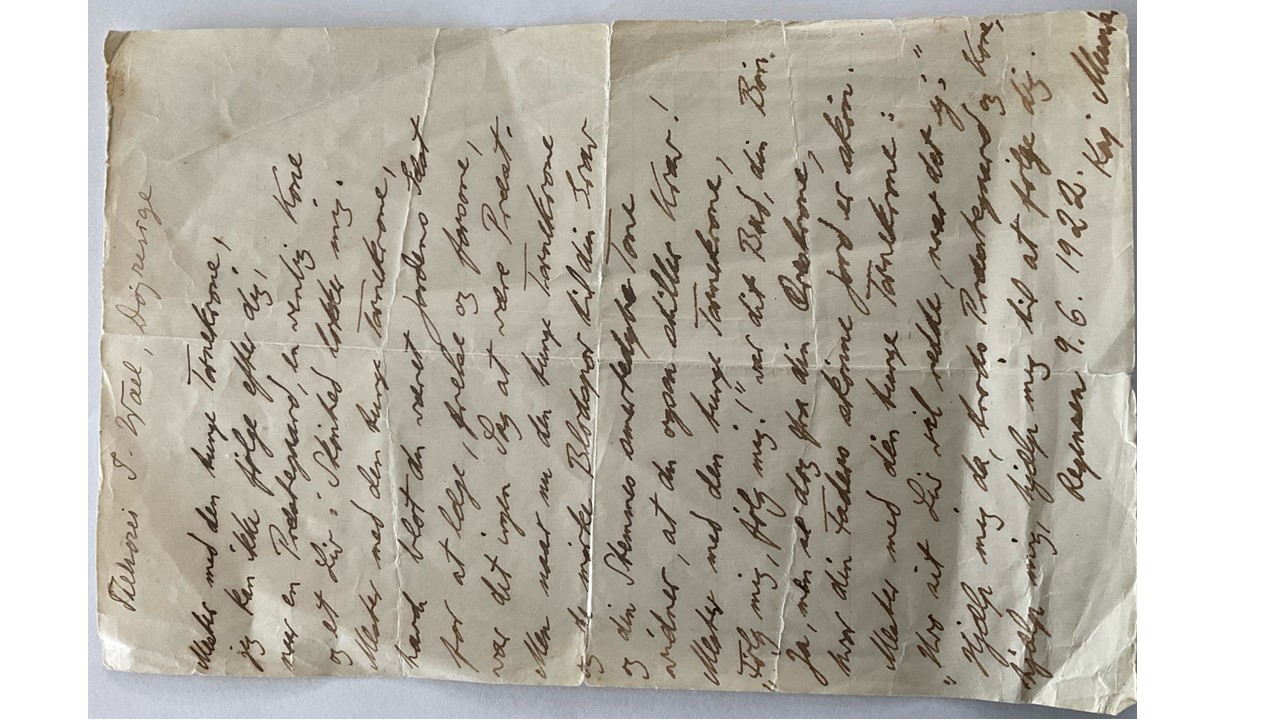 Mester med den tunge Tornekrone,
jeg kan ikke følge efter dig,
naar en Præstegaard, en venlig Kone
og et Liv i Skønhed lokker mig.
Mester med den tunge Tornekrone,
havde blot du været Jordens Saft
for at læge, frelse og forsone,
var det ingen Sag at være Præst.
Men naar nu den tunge Tornekrone
og de mørke Blodspor til din Grav
og din Stemmes smertedybe Tone
vidner, at du ogsaa stiller Krav!
Mester med den tunge Tornekrone,
"Følg mig, følg mig!" var dit Bud, din Bøn.
Ja, men se dog fra din
hvor din Faders skønne Jord er skøn.
Mester med den tunge Tornekrone:
"Hvo sit Liv vil redde, mister det"
Hjælp mig da, trods Præstegaard og Kone,
hjælp mig, hjælp mig til at følge dig.
Regensen 9.6. 1922. Kaj Munk